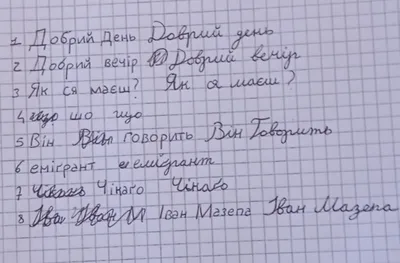 1 Добрий День Доврий день
2 Добрий вечір Доврий вечір
3 Як ся маєш? Як ся маєш?
4 що шо що
5 Він говорить Він Говорить
6 емігрант емігрант
7 Чінаго Чінаго
8 Іва Іван М Іван Мазепа Іван Мазепа